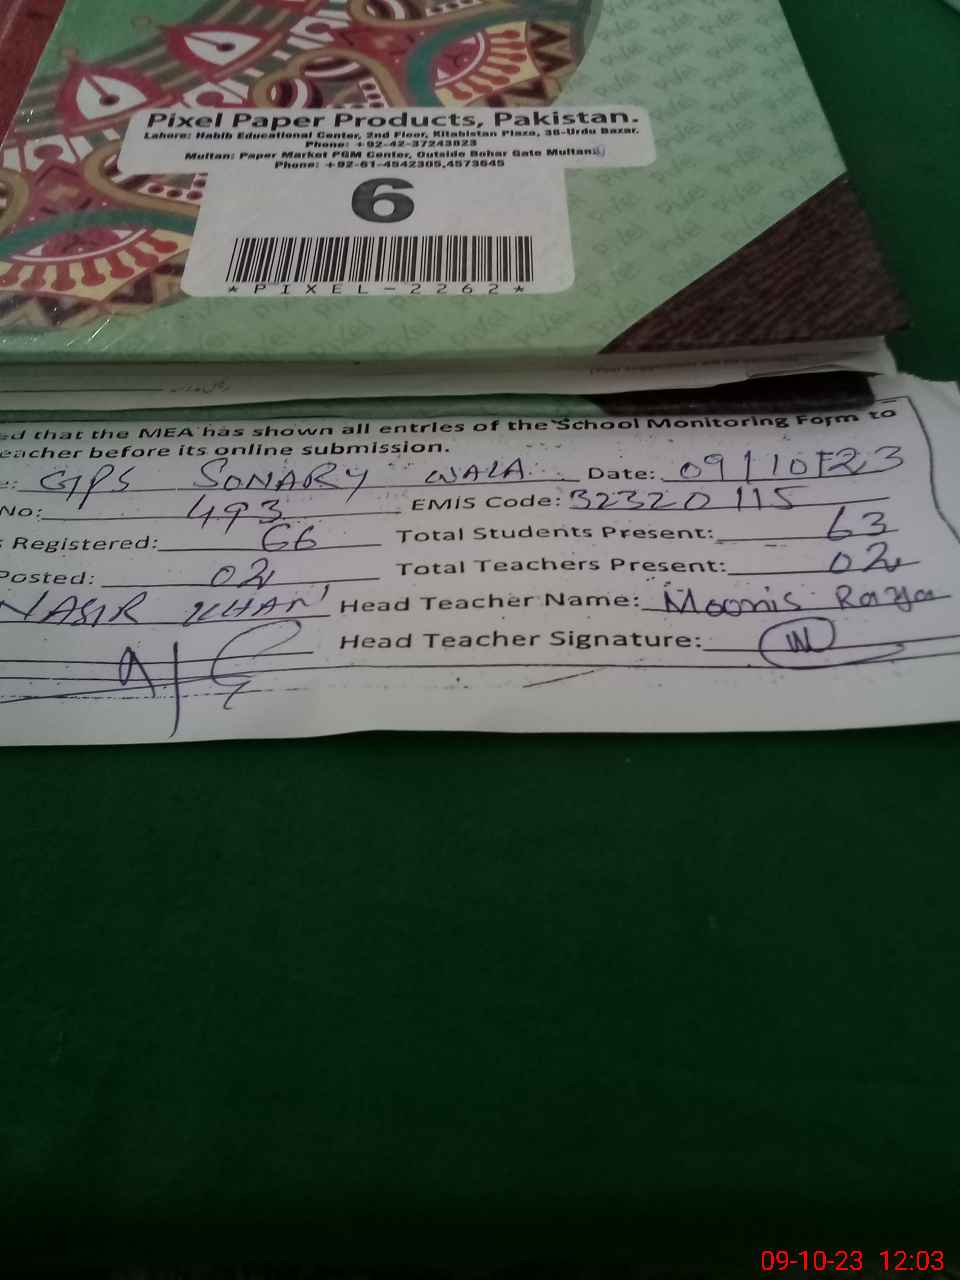 Pixel Paper Products, Pakistan.
Lahore: Habib Educational Center, 2nd Floor, Kitabistan Plaza, 38-Urdu Bazar.
Phone: +92-42-37243823
Multan: Paper Market PGM Center, Outside Bohar Gate Multan.
Phone: +92-61-4542305,4573645
6
*PIXEL-2262*
ed that the MEA has shown all entries of the School Monitoring Form to
eacher before its online submission.
e: GPS SONARY WALA Date: 09/10/23
No: 493 EMIS Code: 32320115
s Registered: 66 Total Students Present: 63
Posted: 02 Total Teachers Present: 02
NASIR KHAN Head Teacher Name: Moonis Raza
Head Teacher Signature:
09-10-23 12:03